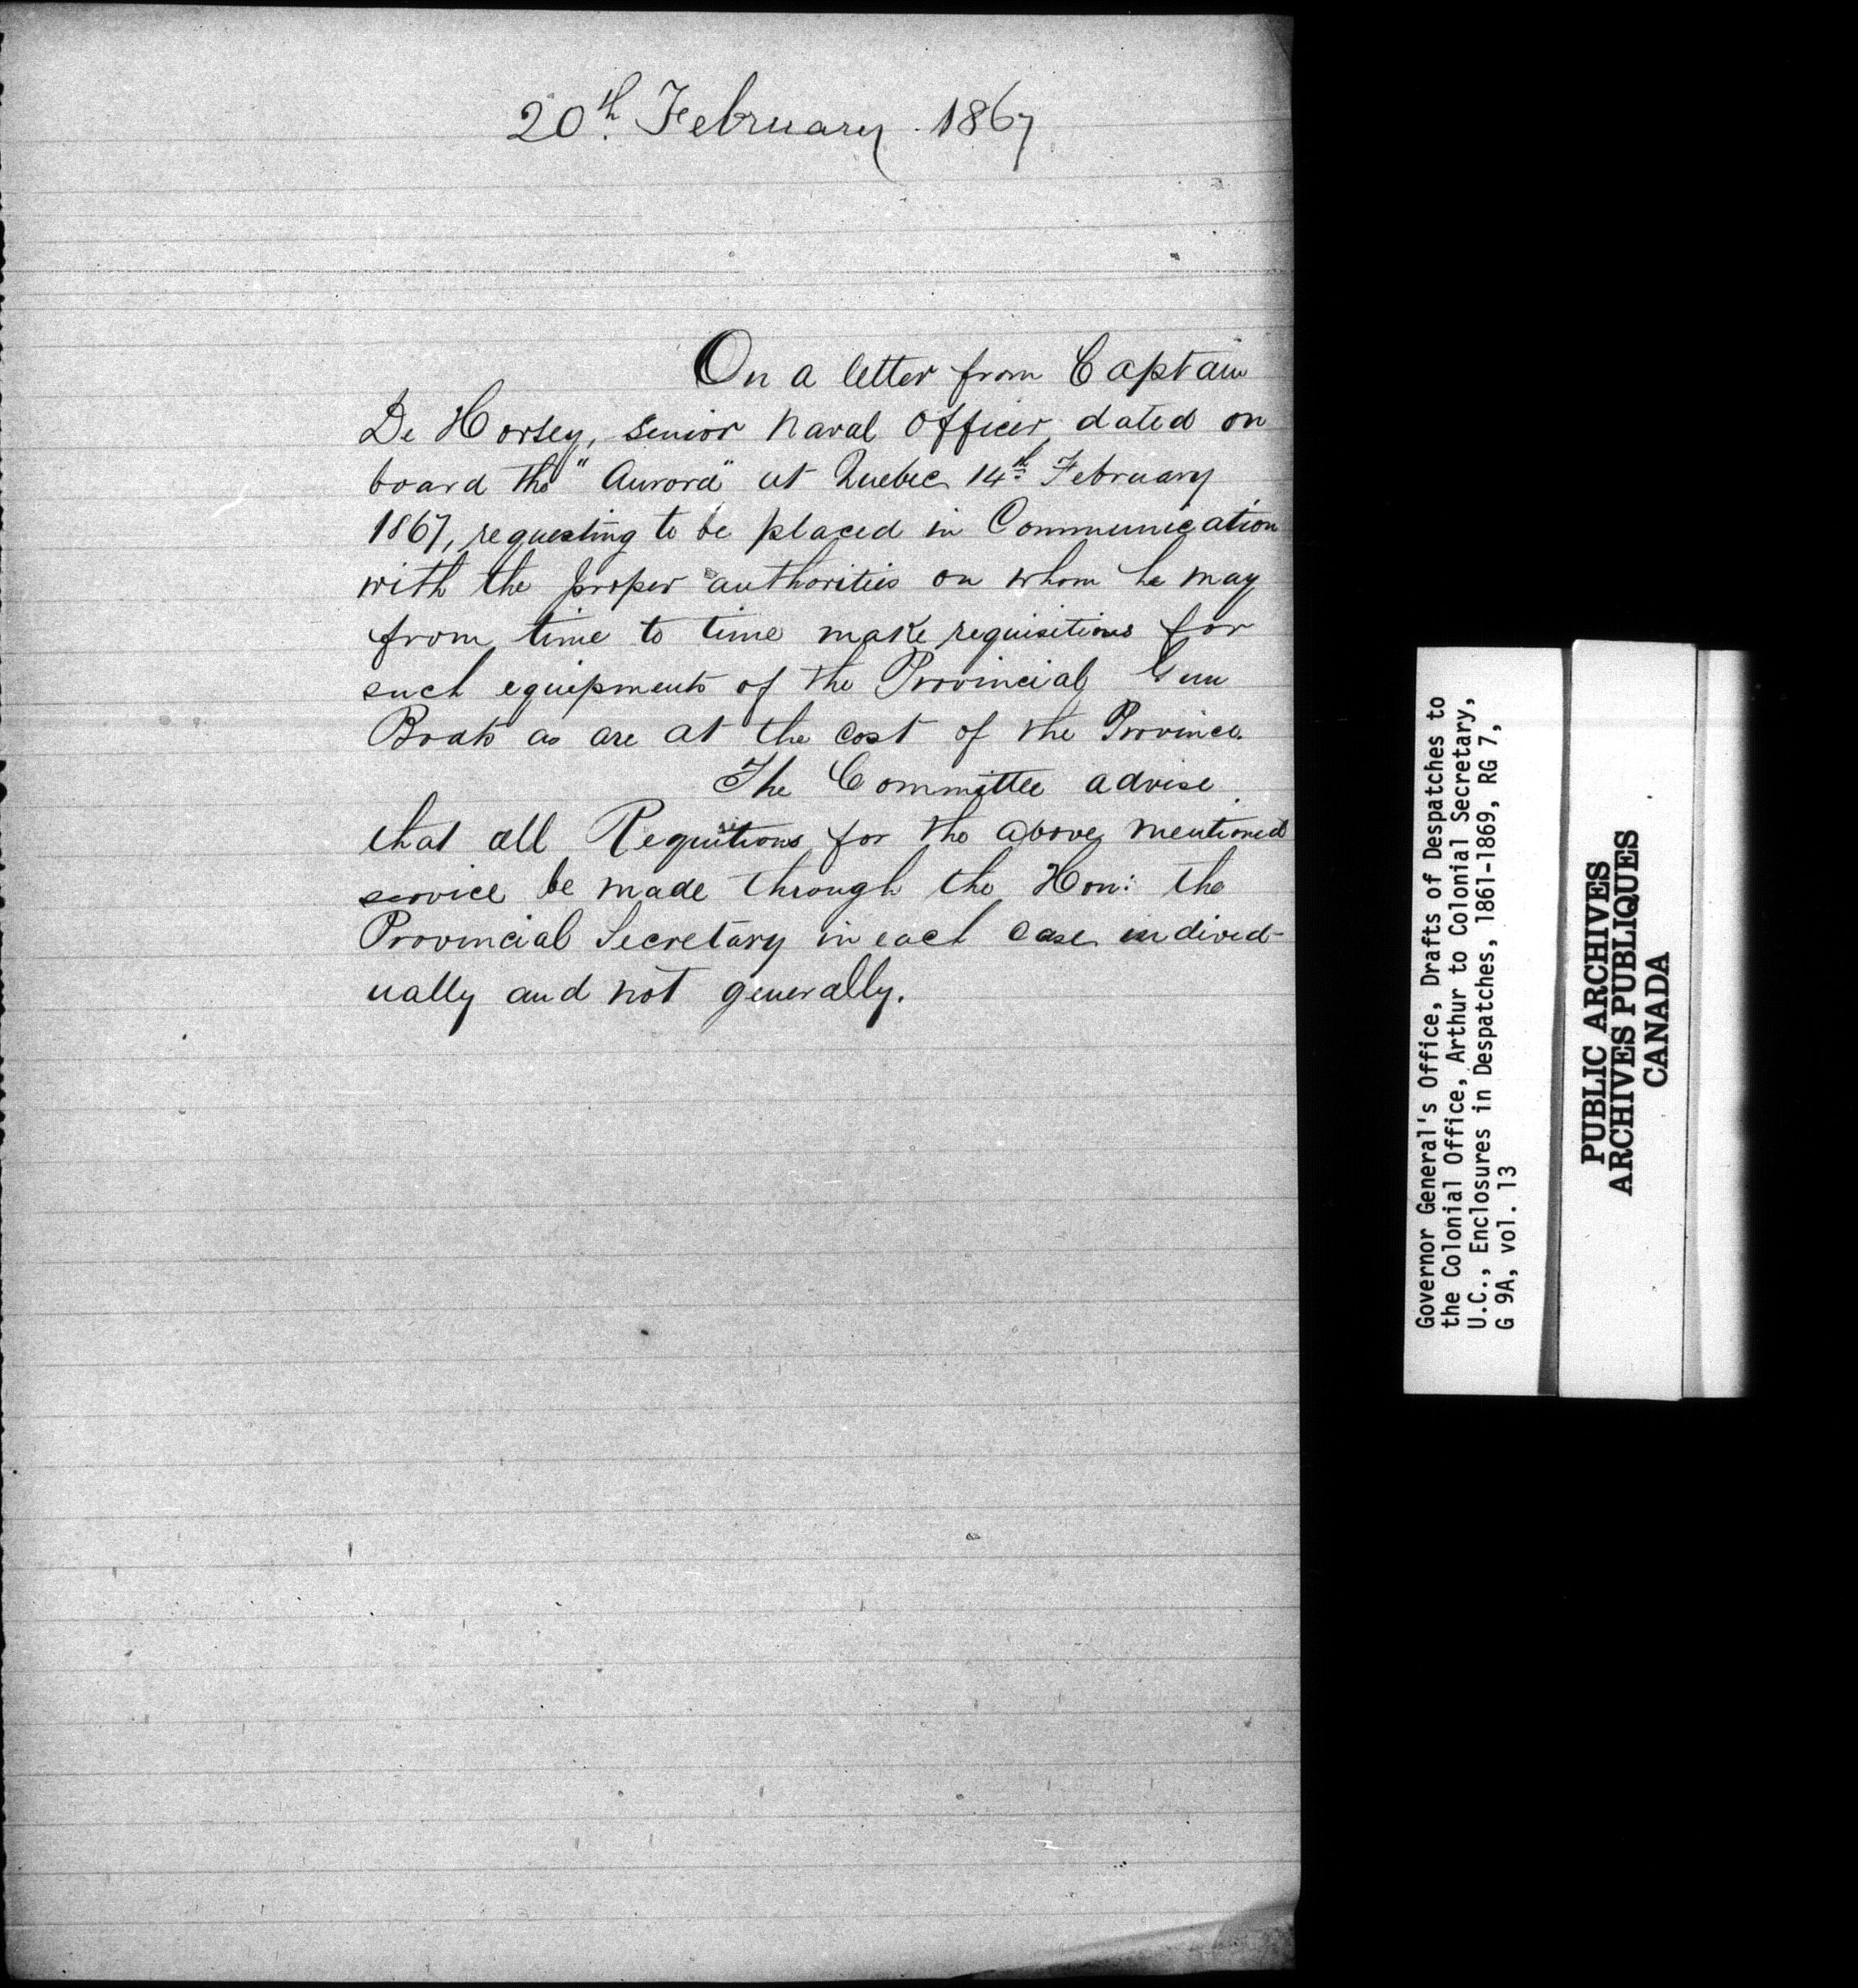 20th February 1867
On a letter from Captain
De Horsey, Senior Naval Officer, dated on
board the "Aurora" at Quebec 14th February
1867, requesting to be placed in Communication
with the proper authorities on whom he may
from time to time make requisitions for
such equipments of the Provincial Gun
Boats as are at the cost of the Province.
The Committee advise
that all Requisitions for the above mentioned
service be made through the Hon: the
Provincial Secretary in each case individ-
ually and not generally.
Governor General's Office, Drafts of Despatches to
the Colonial Office, Arthur to Colonial Secretary,
U.C., Enclosures in Despatches, 1861-1869, RG 7,
G 9A, vol. 13
PUBLIC ARCHIVES
ARCHIVES PUBLIQUES
CANADA